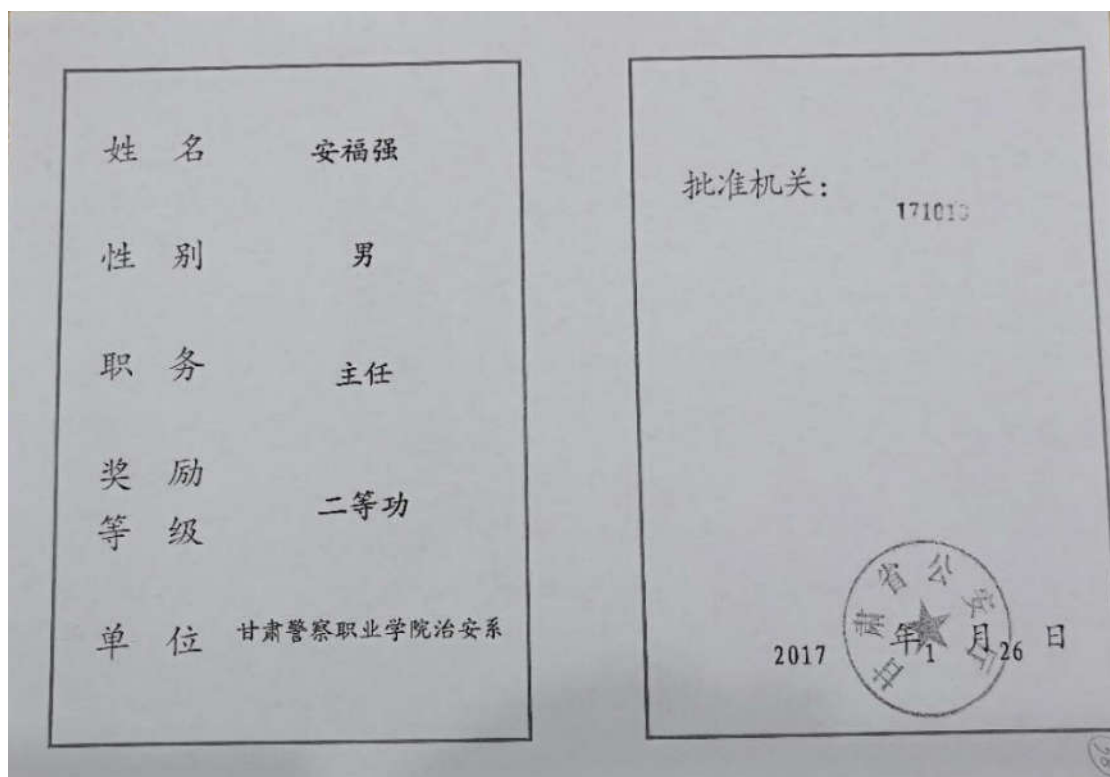 姓 名 安福强
性 别 男
职 务 主任
奖 励
等 级 二等功
单 位 甘肃警察职业学院治安系
批准机关:
甘肃省公安厅
2017 年 1 月 26 日